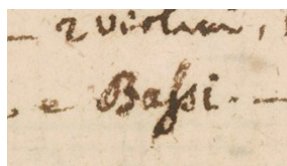 – 2 Violini,
e Bassi. –